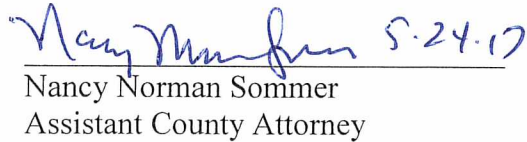 Nancy 5-24-17
Nancy Norman Sommer
Assistant County Attorney